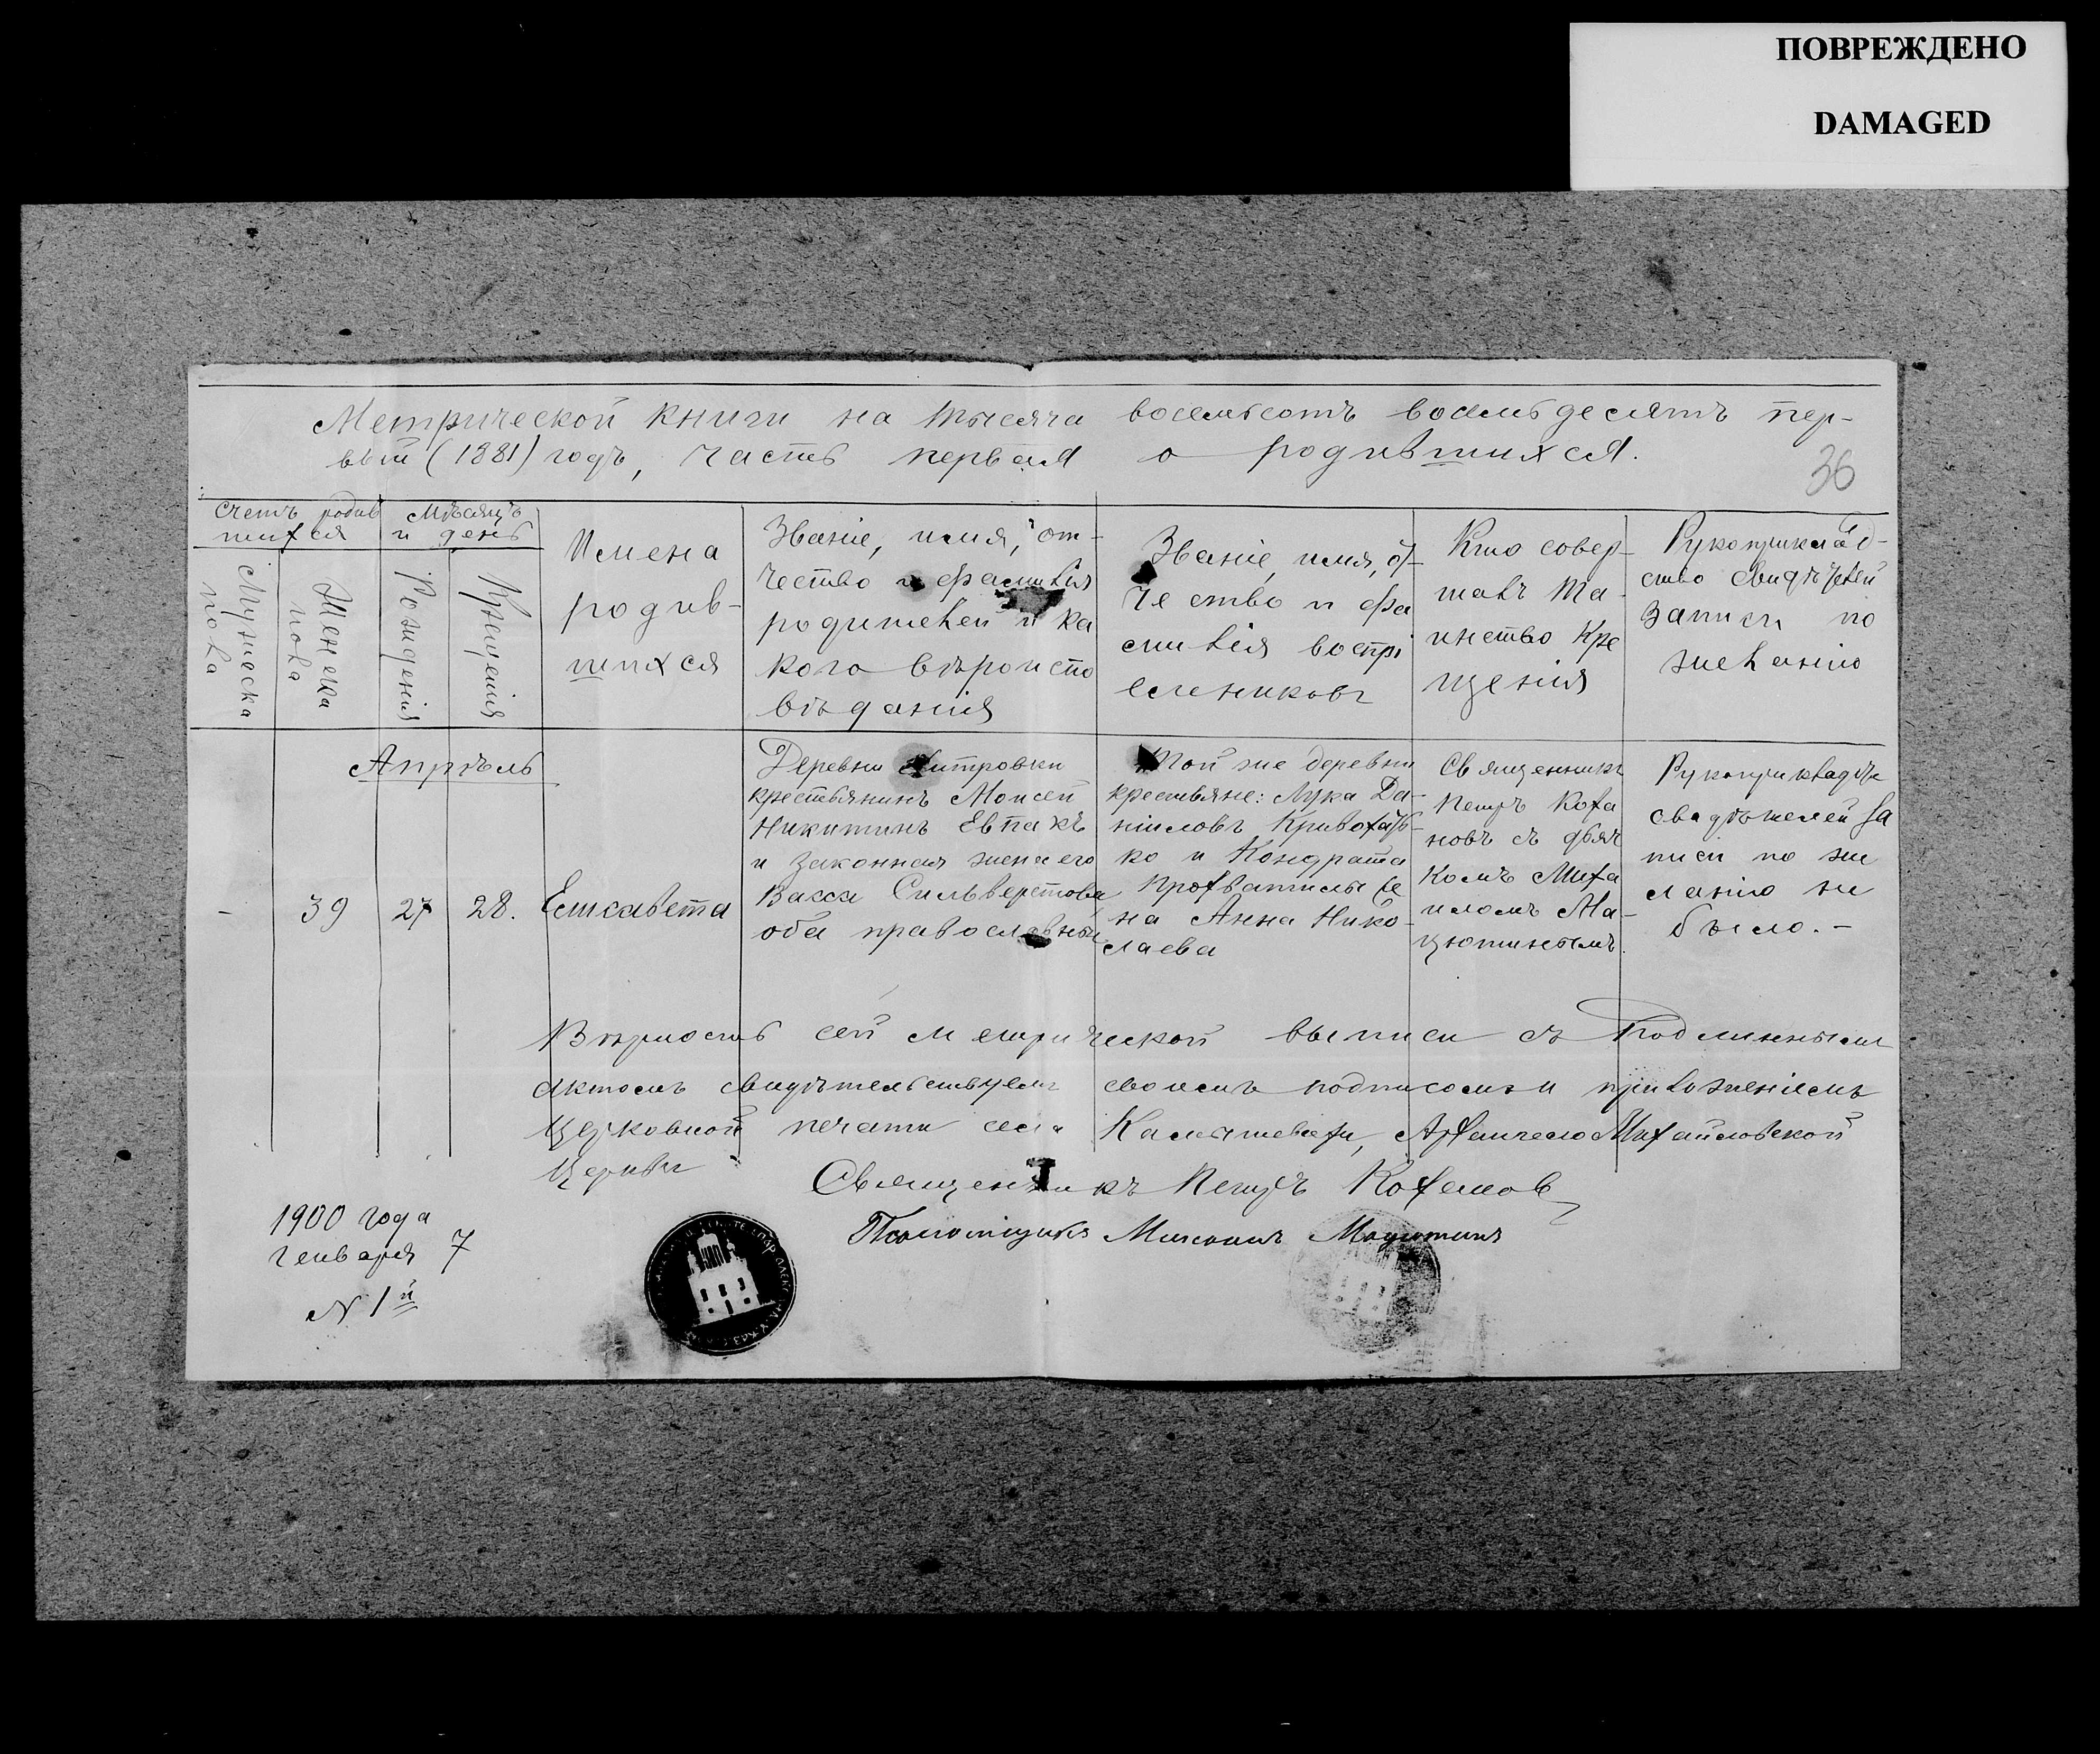 ПОВРЕЖДЕНО
DAMAGED
Метрической книги на тысяча восемьсотъ восемьдесятъ пер-
вый (1881) годъ, часть первая о родившихся.
36
Счетъ родив
шихся
Мужеска
пола
Женска
пола
Мѣсяцъ
и день
Рожденія
Крещенія
Имена
родив-
шихся
Званіе, имя, от-
чество и фамилія
родителей и ка
кого вѣроиспо
вѣданія
Званіе, имя, от-
чество и фа
милія воспрі
емниковъ
Кто совер-
шалъ та-
инство кре
щенія
Рукоприклад-
ство свидѣтелей
записи по
желанію
Апрѣль
-
39
27
28.
Елисавета
Деревни Дмитровки
крестьянинъ Моисей
Никитинъ Евпакъ
и законная жена его
Васса Сильверстова
оба православные
Той же деревни
крестьяне: Лука Да-
ніиловъ
ко и Кондрата
же
на Анна Нико-
лаева
Священникъ
Петръ Коха
новъ съ дьяч
комъ Миха
иломъ Ма-
цютинымъ.
Рукоприкладства
свидѣтелей за
писи по же
ланію не
было.-
Вѣрность сей метрической выписи съ подлиннымъ
актомъ свидѣтельствуемъ своимъ подписомъ и приложеніемъ
церковной печати села Камышевахи, Архангело Михайловской
церкви
Священникъ Петръ Коханов
Псаломщикъ Михаилъ Мацютинъ
1900 года
генваря 7
N 1й